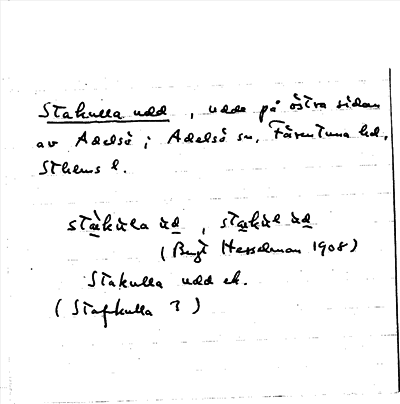 Stakulla udd, udde på östra sidan
av Adelsö; Adelsö sn, Färentuna hd,
Sthlms l.
stàkùla ùd, stakùl ùd
(Bengt Hesselman 1908)
Stakulla udd ek.
(Stafkulla ?)